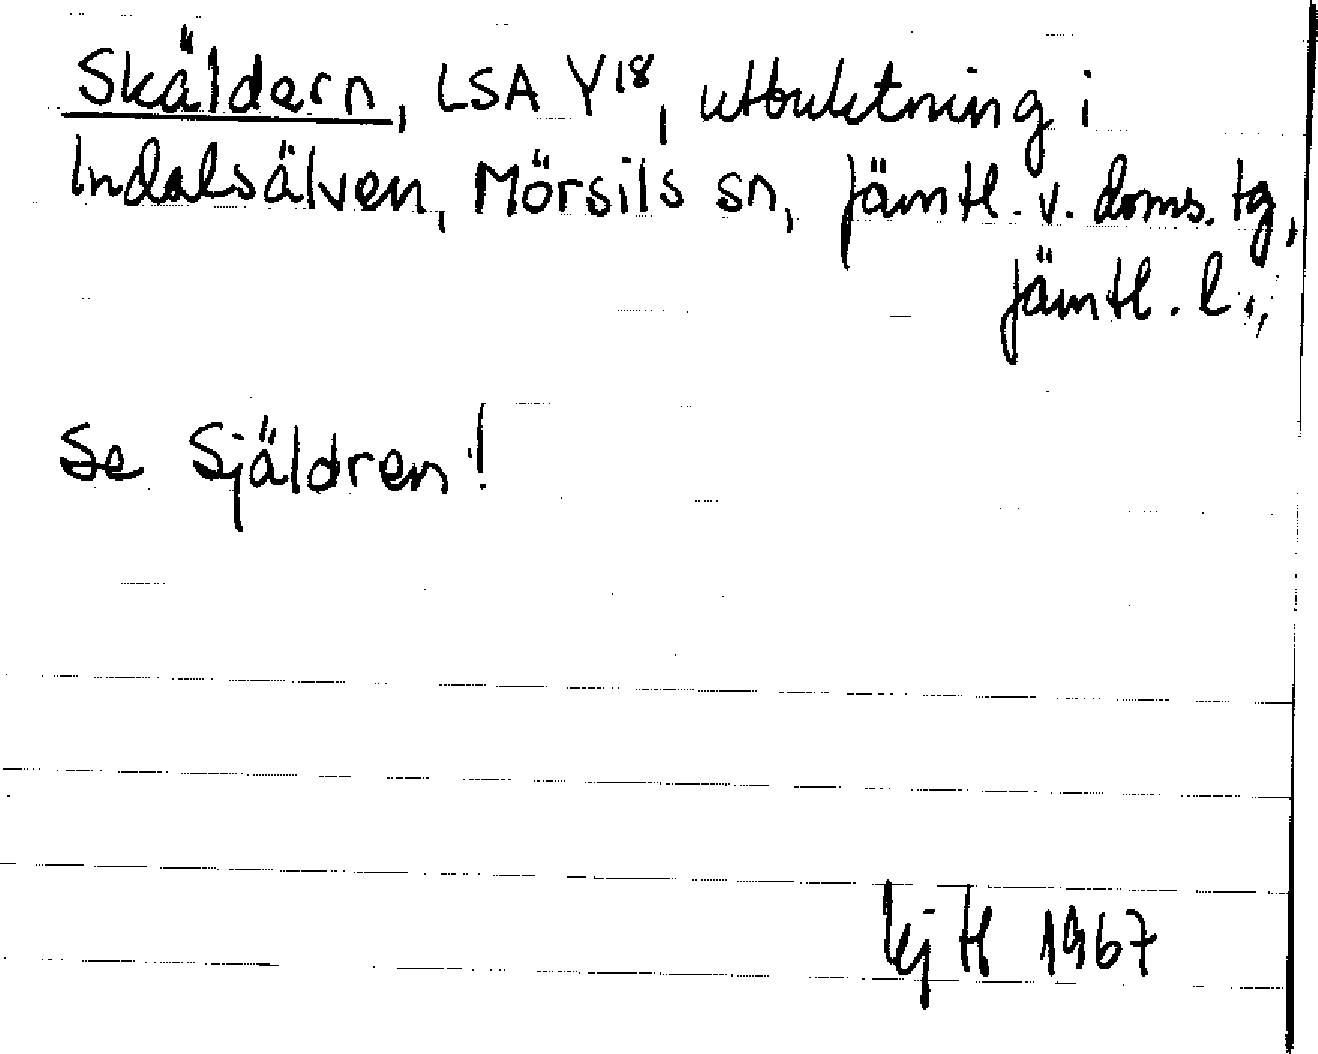 Skäldern, LSA Y18, utbuktning i
Indalsälven, Mörsils sn, Jämtl. v. doms. tg,
Jämtl. l.,
Se Själdren!
kj H 1967